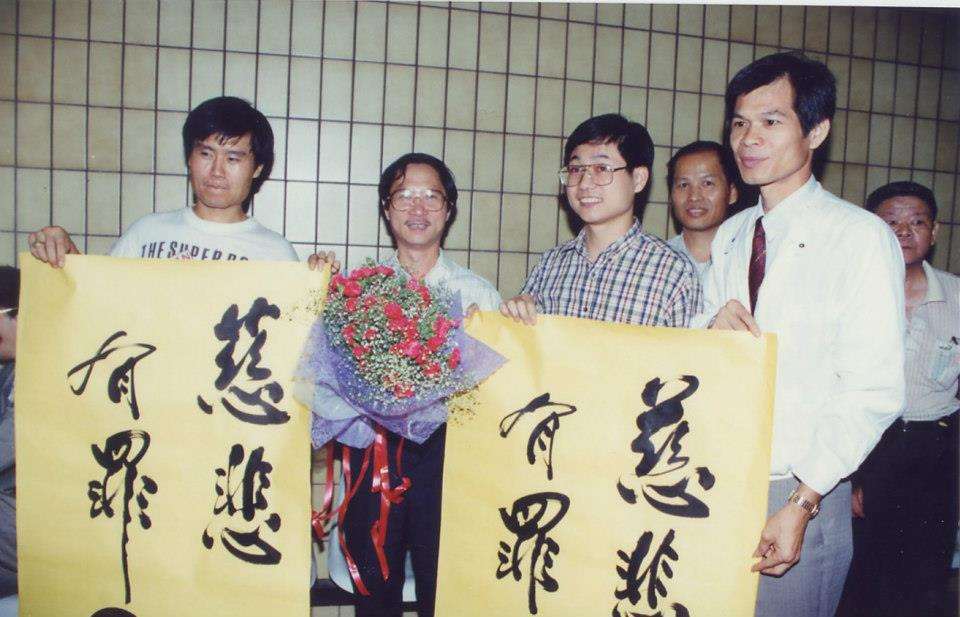 THE SUPER
慈悲
有罪
慈悲
有罪